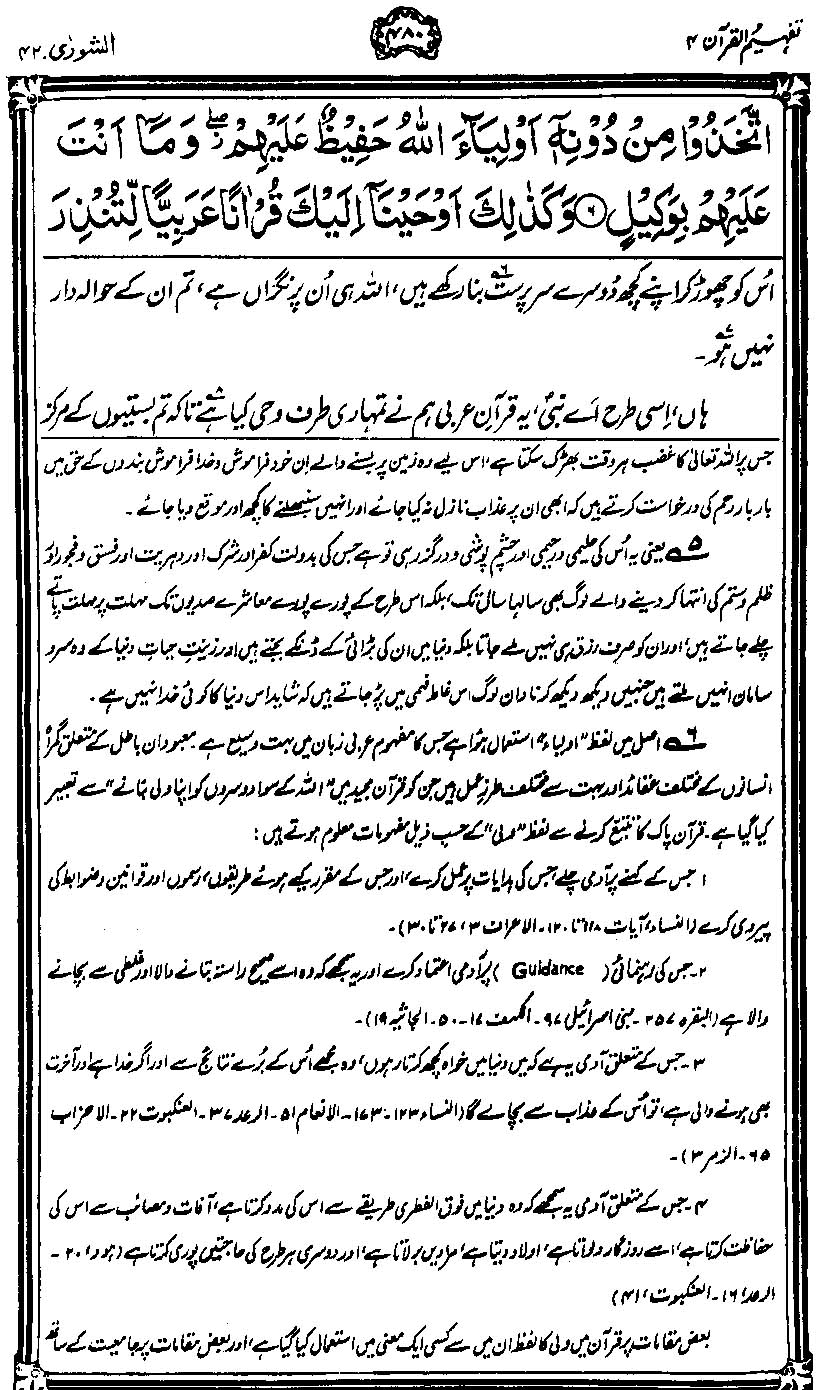 تفہیم القرآن ۴
۴۸۰
الشورٰی ۴۲
اتَّخَذُوْا مِنْ دُوْنِهٖٓ اَوْلِيَآءَ اللّٰهُ حَفِيْظٌ عَلَيْهِمْ ۖ وَمَآ اَنْتَ
عَلَيْهِمْ بِوَكِيْلٍ ۶ وَكَذٰلِكَ اَوْحَيْنَآ اِلَيْكَ قُرْاٰنًا عَرَبِيًّا لِّتُنْذِرَ
اُس کو چھوڑ کر اپنے کچھ دُوسرے سرپرست ۶ بنا رکھے ہیں، اللہ ہی اُن پر نگراں ہے، تم ان کے حوالہ دار
نہیں ہو ۷۔
ہاں، اِسی طرح اَے نبیؐ، یہ قرآنِ عربی ہم نے تمہاری طرف وحی کیا ۸ ہے تاکہ تم بستیوں کے مرکز
جس پر اللہ تعالیٰ کا غضب ہر وقت بھڑک سکتا ہے، اس لیے وہ زمین پر بسنے والے اِن خود فراموش و خدا فراموش بندوں کے حق میں
بار بار رحم کی درخواست کرتے ہیں کہ ابھی ان پر عذاب نازل نہ کیا جائے اور انہیں سنبھلنے کا کچھ اور موقع دیا جائے۔
۵ یعنی یہ اُس کی حلیمی و رحیمی اور چشم پوشی و درگزر ہی تو ہے جس کی بدولت کفر اور شرک اور دہریت اور فسق و فجور اور
ظلم و ستم کی انتہا کر دینے والے لوگ بھی سالہا سال تک، بلکہ اس طرح کے پورے پورے معاشرے صدیوں تک مہلت پر مہلت پاتے
چلے جاتے ہیں، اور ان کو صرف رزق ہی نہیں ملے جاتا بلکہ دنیا میں ان کی بڑائی کے ڈنکے بجتے ہیں اور زینتِ حیاتِ دنیا کے وہ سرو
سامان انہیں ملتے ہیں جنہیں دیکھ دیکھ کر نادان لوگ اس غلط فہمی میں پڑ جاتے ہیں کہ شاید اس دنیا کا کوئی خدا نہیں ہے۔
۶ اصل میں لفظ "اولیاء" استعمال ہُوا ہے جس کا مفہوم عربی زبان میں بہت وسیع ہے۔ معبودانِ باطل کے متعلق گمراہ
انسانوں کے مختلف عقائد اور بہت سے مختلف طرزِ عمل ہیں جن کو قرآن مجید میں "اللہ کے سوا دوسروں کو اپنا ولی بنانے" سے تعبیر
کیا گیا ہے۔ قرآن پاک کا تتبع کرنے سے لفظ "ولی" کے حسبِ ذیل مفہومات معلوم ہوتے ہیں:
۱ جس کے کہنے پر آدمی چلے، جس کی ہدایات پر عمل کرے، اور جس کے مقرر کیے ہوئے طریقوں، رسموں اور قوانین و ضوابط کی
پیروی کرے (النساء، آیات ۱۱۸ تا ۱۲۰۔ الاعراف ۳، ۲۷ تا ۳۰)۔
۲۔ جس کی رہنمائی (Guidance) پر آدمی اعتماد کرے اور یہ سمجھے کہ وہ اسے صحیح راستہ بتانے والا اور غلطی سے بچانے
والا ہے (البقرہ ۲۵۷۔ بنی اسرائیل ۹۷۔ الکہف ۱۷۔۵۰۔ الجاثیہ ۱۹)۔
۳۔ جس کے متعلق آدمی یہ ہے کہ میں دنیا میں خواہ کچھ کرتا رہوں، وہ مجھے اُس کے بُرے نتائج سے اور اگر خدا ہے اور آخرت
بھی ہونے والی ہے، تو اُس کے عذاب سے بچا لے گا (النساء ۱۲۳۔۱۷۳۔ الانعام ۵۱۔ الرعد ۳۷۔ العنکبوت ۲۲۔ الاحزاب
۶۵۔ الزمر ۳)۔
۴۔ جس کے متعلق آدمی یہ سمجھے کہ وہ دنیا میں فوق الفطری طریقے سے اس کی مدد کرتا ہے، آفات و مصائب سے اس کی
حفاظت کرتا ہے، اسے روزگار دلواتا ہے، اولاد دیتا ہے، مرادیں بر لاتا ہے، اور دوسری ہر طرح کی حاجتیں پوری کرتا ہے (ہود، ۲۰۔
الرعد، ۱۶۔ العنکبوت، ۴۱)
بعض مقامات پر قرآن میں ولی کا لفظ ان میں سے کسی ایک معنی میں استعمال کیا گیا ہے، اور بعض مقامات پر جامعیت کے ساتھ